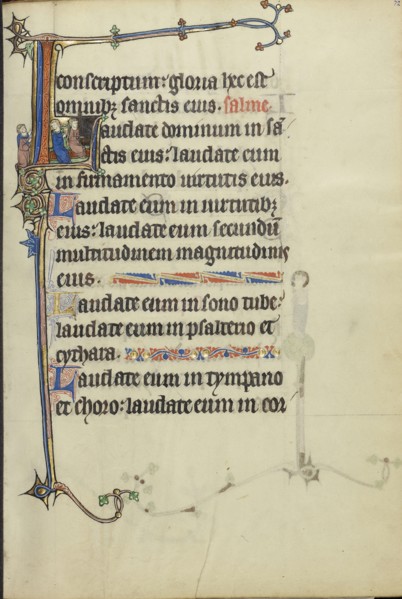 conscriptum: gloria hec est
omnibꝫ sanctis eius. salme.
Laudate dominum in sā
ctis eius: laudate eum
in firmamento uirtutis eius.
Laudate eum in uirtutibꝫ
eius: laudate eum secundū
multitudinem magnitudinis
eius.
Laudate eum in sono tube:
laudate eum in psalterio et
cythara.
Laudate eum in tympano
et choro: laudate eum in cor